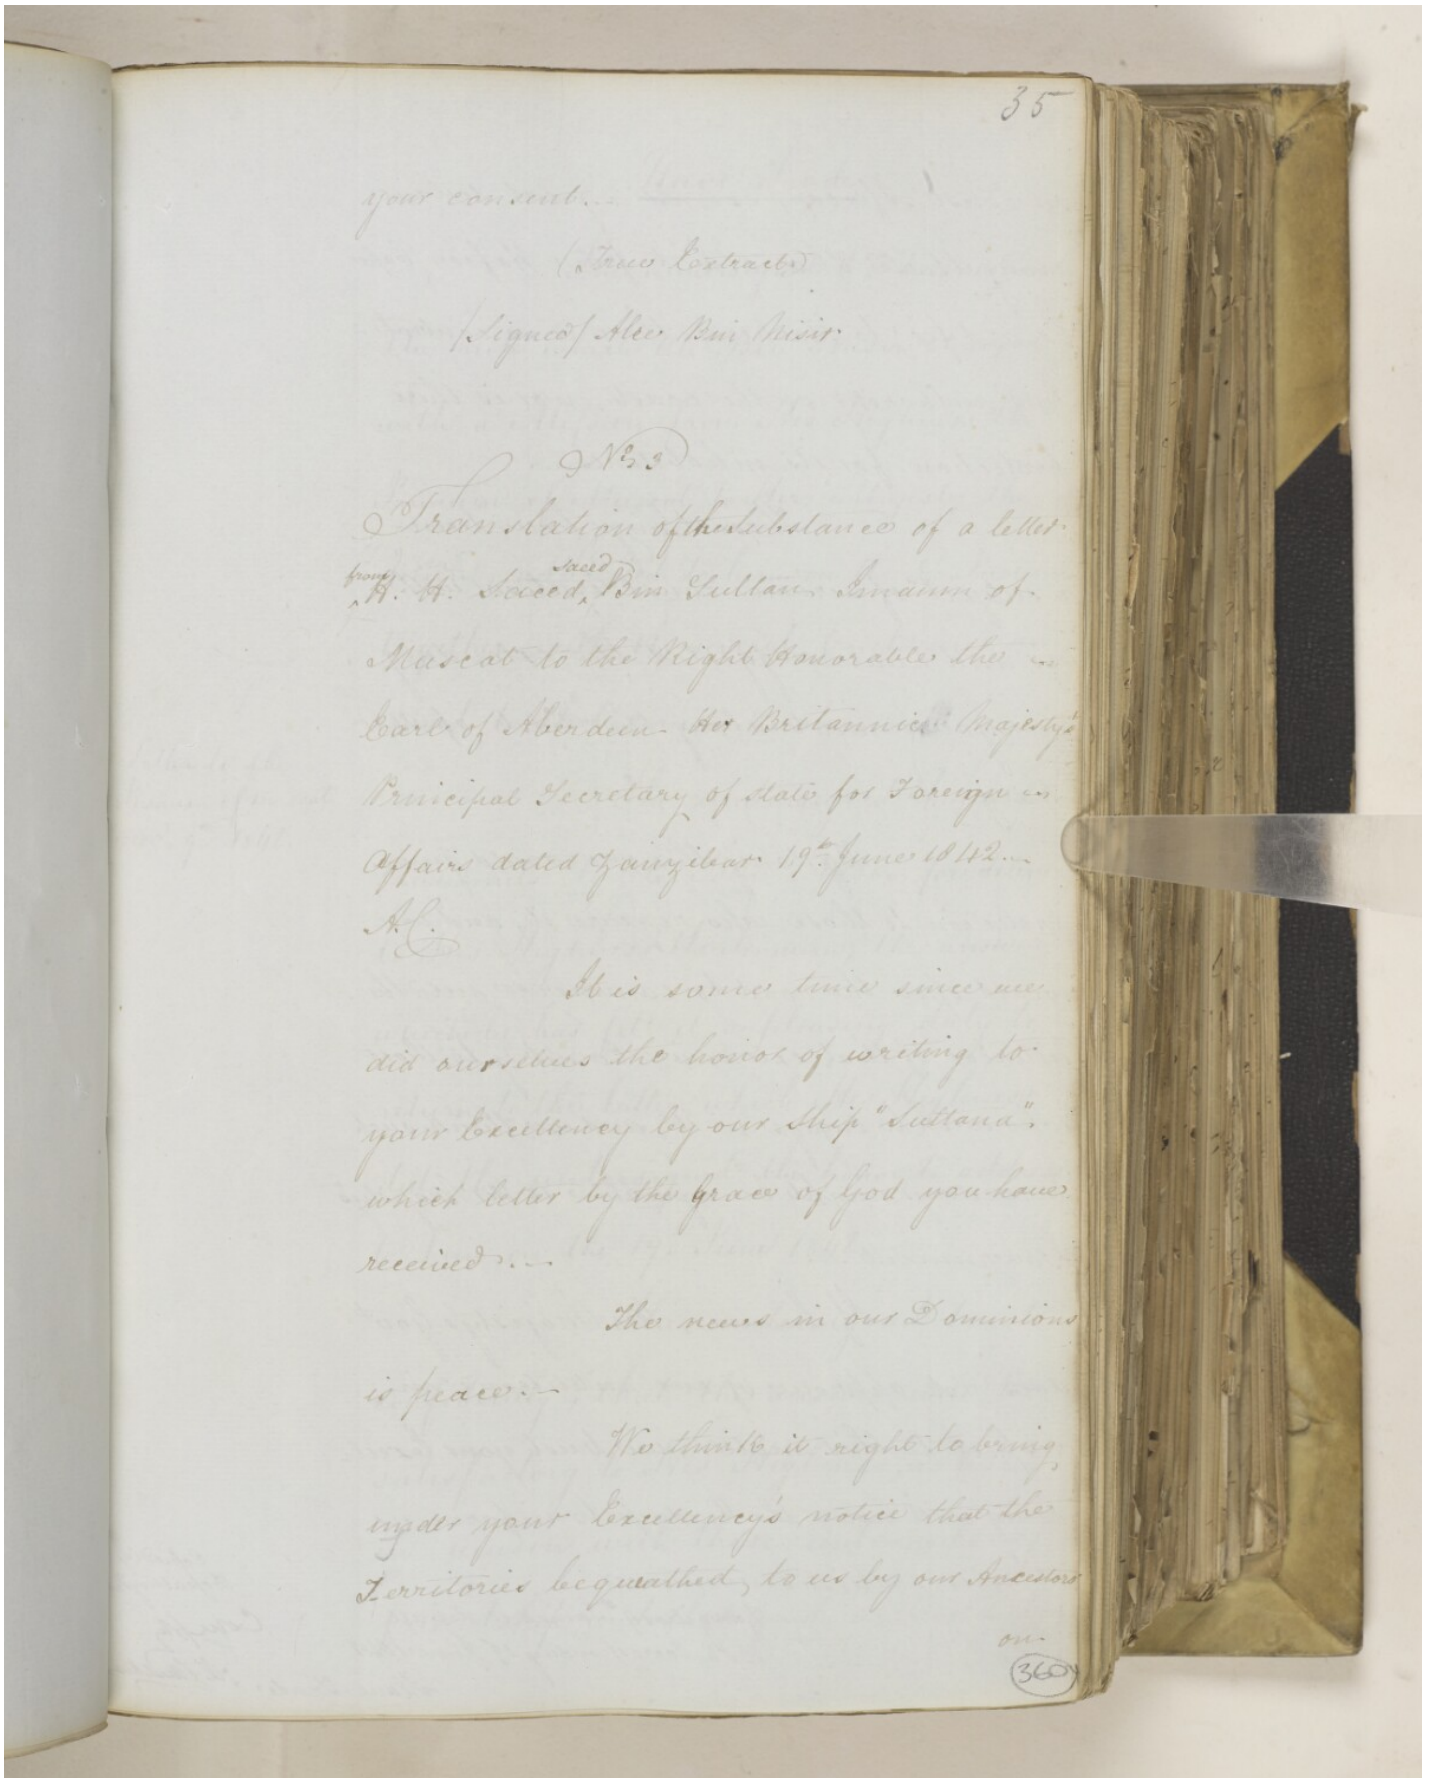 35
your consent.—
(True Extract)
/Signed/ Alee Bin Nisir.
No. 3
Translation of the Substance of a letter
from H. H. Saeed saeed Bin Sultan Imaum of
Muscat to the Right Honorable the —
Earl of Aberdeen Her Britannic Majesty's
Principal Secretary of state for Foreign —
Affairs dated Zanzibar 19th June 1842.—
A.C.
It is some time since we
did ourselves the honor of writing to
your Excellency by our Ship "Sultana",
which letter by the Grace of God you have
received.—
The news in our Dominions
is peace.—
We think it right to bring
under your Excellency's notice that the
Territories bequeathed to us by our Ancestors
on
360